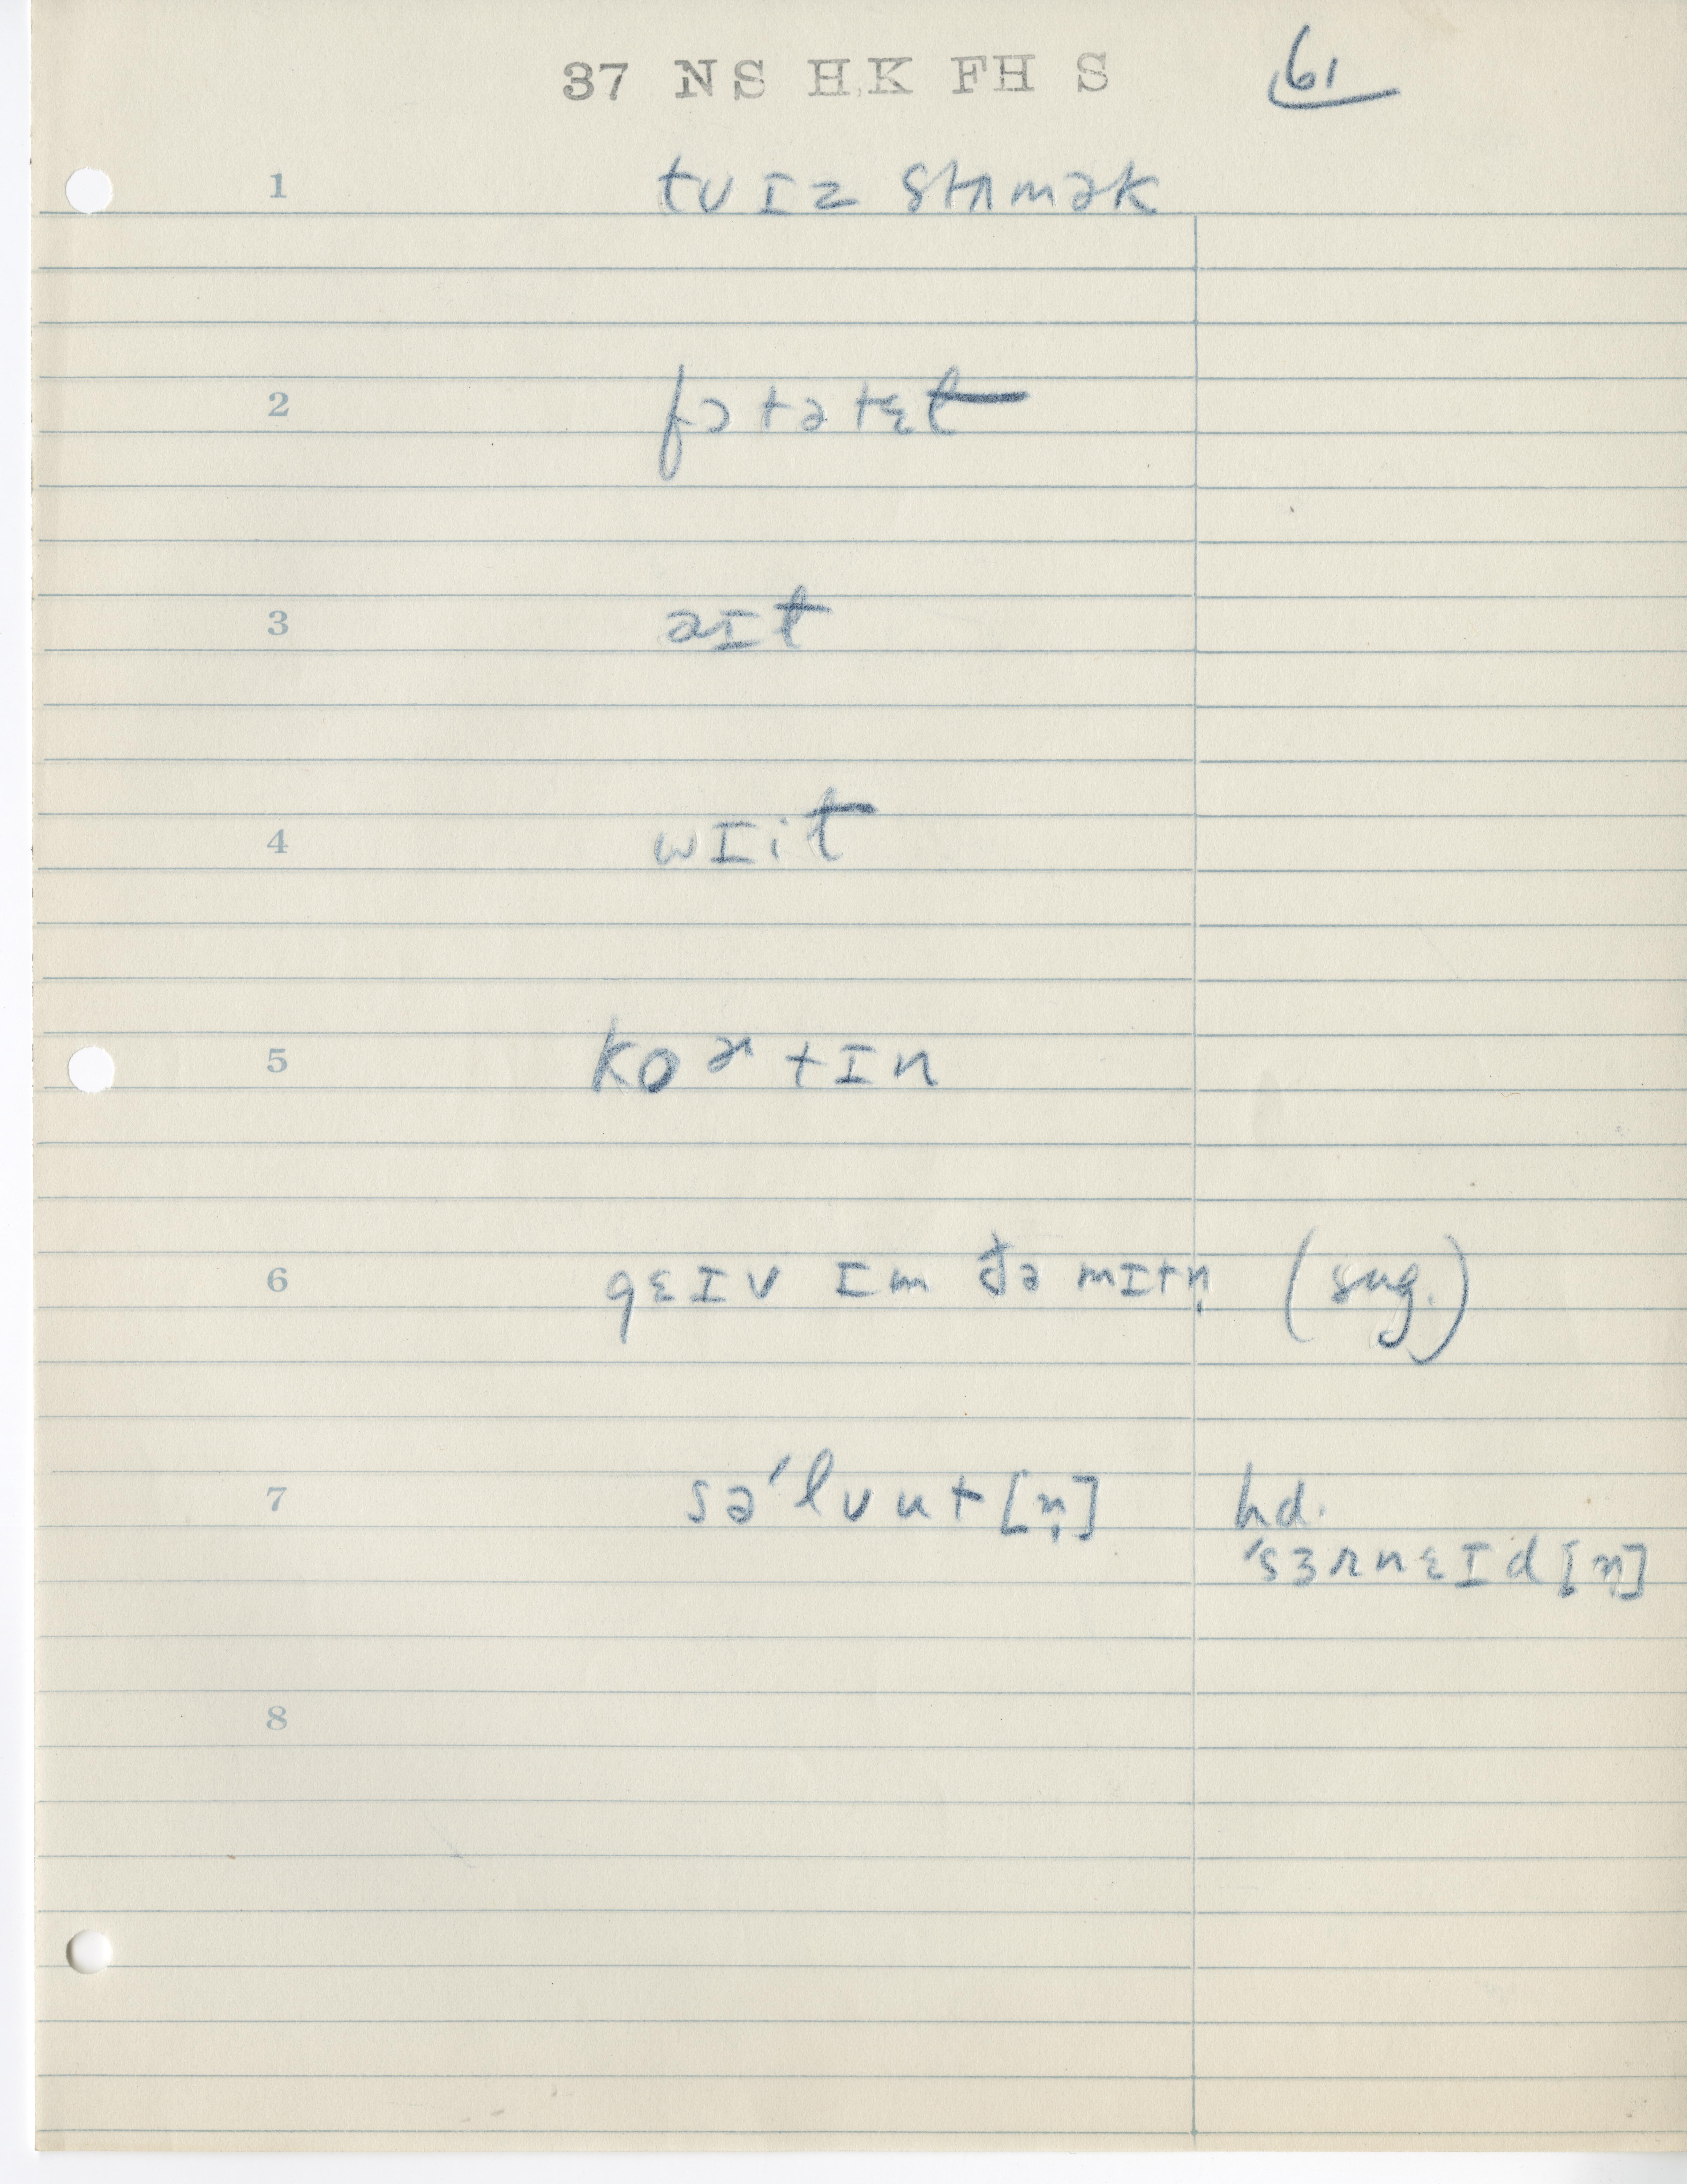 37 NS HK FH S 61
1 tʊɪz stʌmək
2 fɔtətɛt
3 aɪt
4 wɪit
5 koɚtɪn
6 gɛɪv ɪm ðə mɪtn̩ (sug.)
7 sə'lʊut[n̩] hd.
'sɜrnɛɪd[n]
8